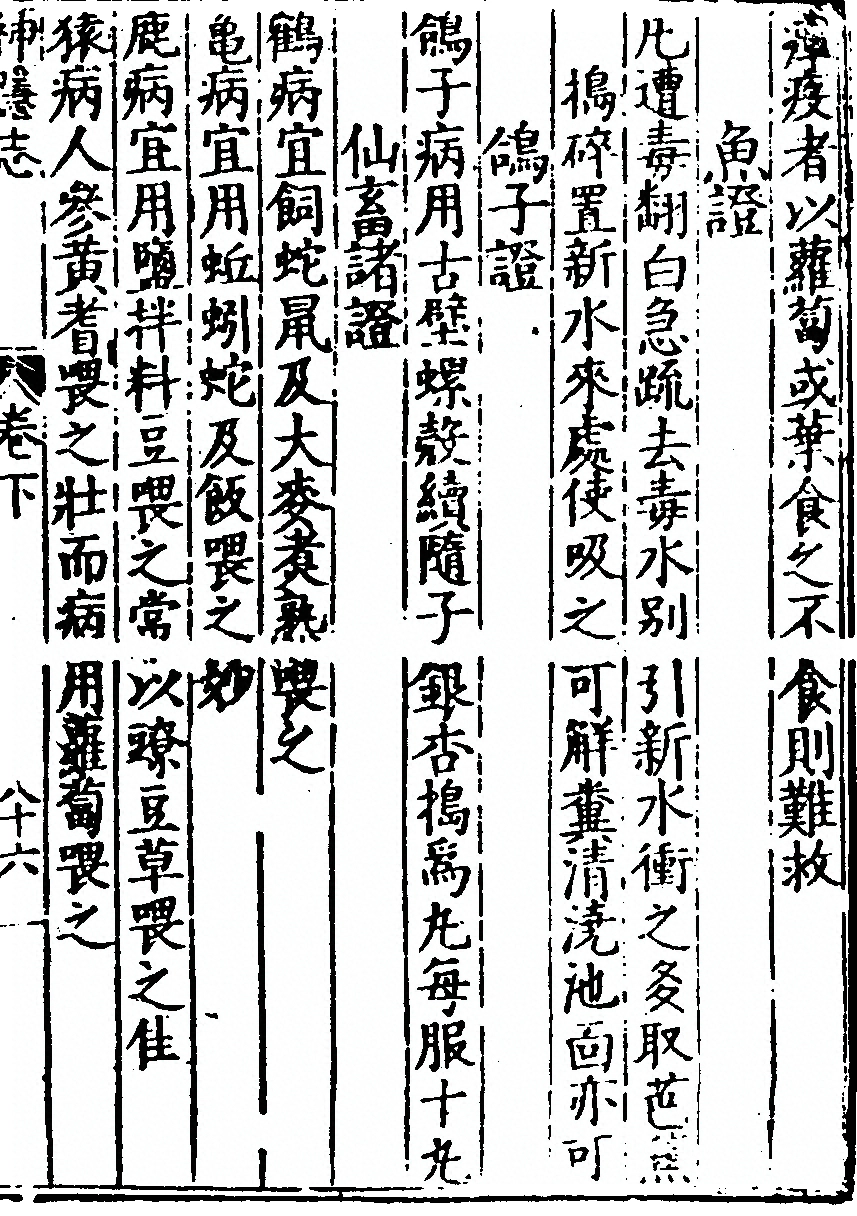 疫者以蘿蔔或葉食之不食則難救
魚證
凡遭毒翻白急疏去毒水別引新水衝之多取芭蕉
搗碎置新水來處使吸之可解糞清澆池面亦可
鴿子證
鴿子病用古壁螺殼續隨子銀杏搗爲丸每服十丸
仙畜諸證
鶴病宜飼蛇鼠及大麥煮熟喂之
亀病宜用蚯蚓蛇及飯喂之妙
鹿病宜用鹽拌料豆喂之常以豆草喂之佳
猿病人參黃耆喂之壯而病用蘿蔔喂之
神隱志 卷下 八十六